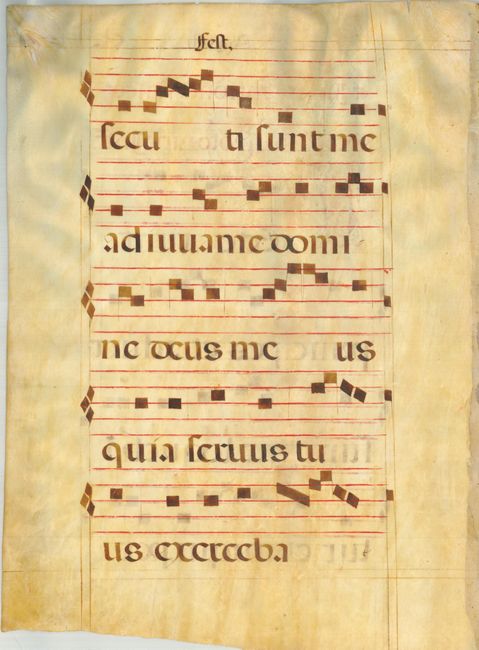 Fest.
secu ti sunt me
adiuuame domi
ne deus me us
quia seruus tu
us exerceba